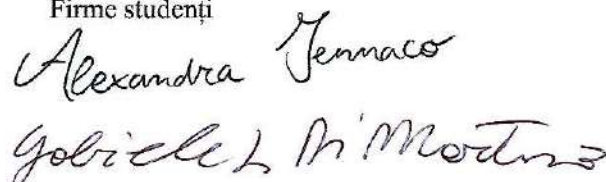 Firme studenți
Alexandra Jennaco
Gabriele L Di Martino